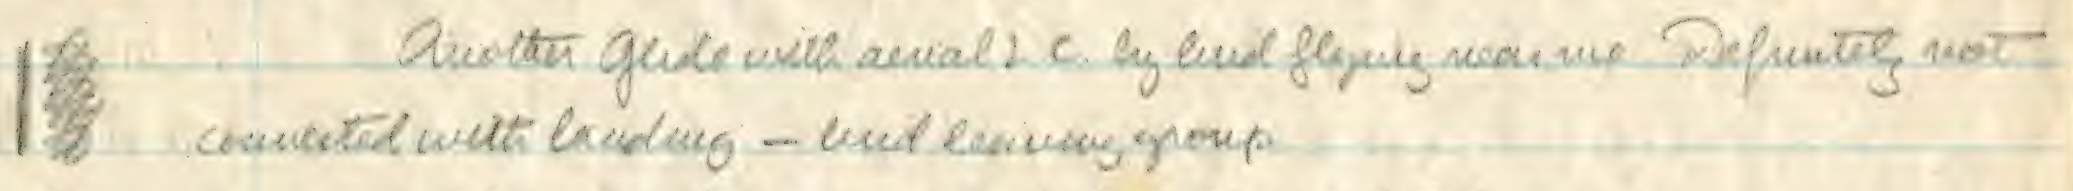 Another Glide with aerial L.C. by bird flying near me Definitely not
connected with landing — bird leaving group